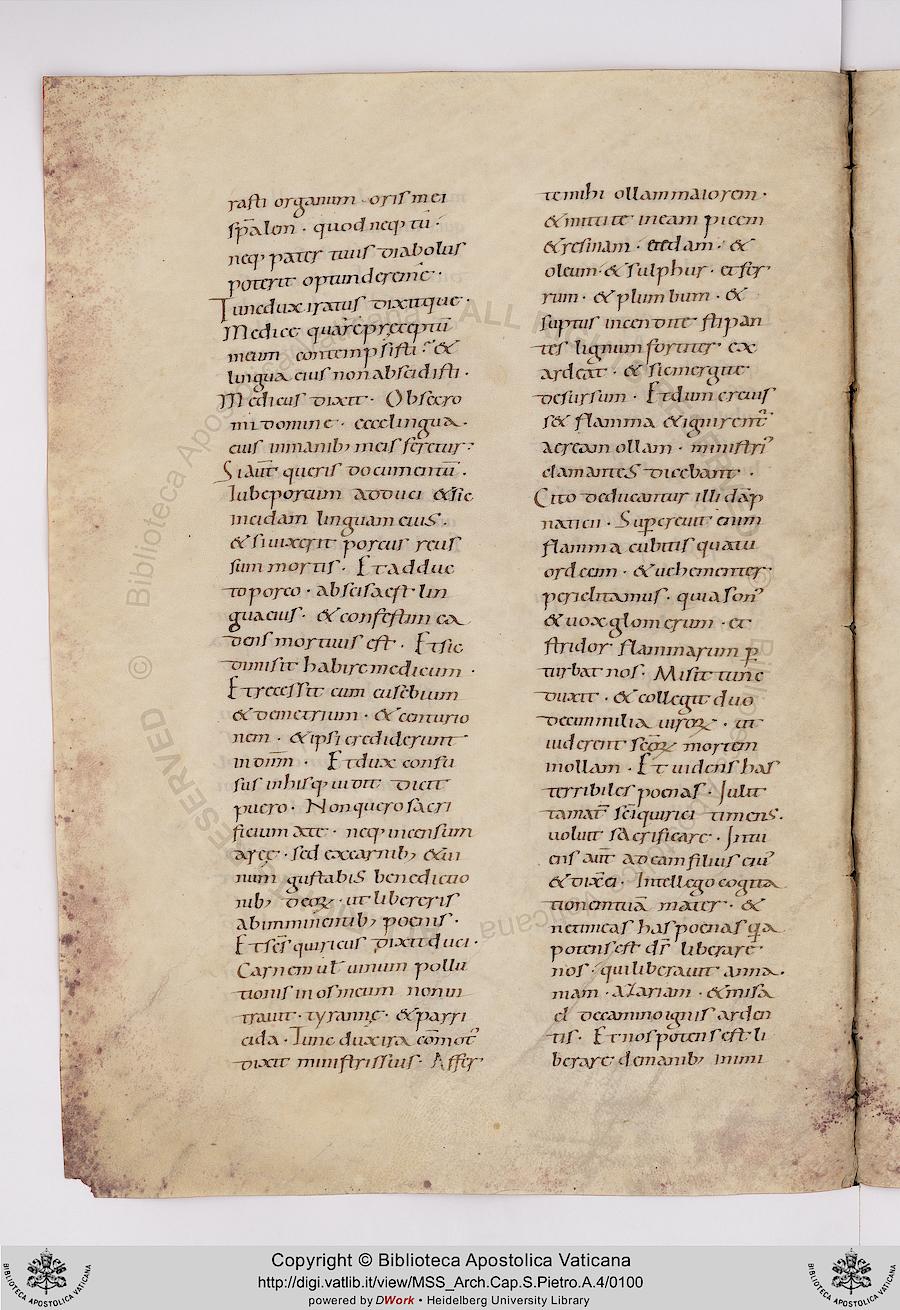 rasti organum · oris mei
sp̄alem · quod neq; tū ·
neq; pater tuus diabolus
poterit optundere me ·
Tunc dux iratus dixitque ·
Medice quare preceptū
meum contempsisti ? &
lingua eius non abscidisti ·
Medicus dixit · Obsecro
mi domine · ecce lingua ·
eius in manib; meis feretur ·
Si aut̄ queris documentū ·
Iube porcum adduci & sic
incidam linguam eius ·
& si uixerit porcus reus
sum mortis · Et adduc
to porco · abscisa est lin
gua eius · & confestim ca
dens mortuus est · Et sic
dimisit habire medicum ·
Et recessit cum eusebium
& demetrium · & centurio
nem · & ipsi crediderunt
in dn̄m · Et dux consu
sus in his q; uidit dicit
puero · Non quero sacri
ficium a te · neq; incensum
a rege · sed ex carnib; & ui
num gustabis benedictio
nib; deoꝝ · ut libereris
ab imminentib; poenis ·
Et scs̄ quiricus dixit duci ·
Carnem ul̄ uinum pollu
tionis in os meum non in
trauit · tyranne · & parri
cida · Tunc dux ira cōmot᾽
dixit ministris suis · Affer
te mihi ollam maiorem ·
& mittite in eam picem
& resinam · & sedam · &
oleum · & sulphur · et fer
rum · & plumbum · &
suptus incendite stipan
tes lignum fortiter ex
ardeat · & sic mergite
desursum · Et dum creuis
s& flamma & ignirent᾽
aeream ollam · ministri
clamantes dicebant ·
Cito deducantur illi dāp
naticii · Supercreuit enim
flamma cubitis quatu
ordecim · & uehementer ·
periclitamus · quia son᾽
& uox glomerum · et
stridor flammarum ꝑ
turbat nos · Misit tunc
duxit · & collegit duo
decim milia uiroꝝ · ut
uiderent scōꝝ mortem
in ollam · Et uidens has
terribiles poenas · Iulit
ta mat̄ sci quirici timens ·
uoluit sacrificare · Intu
ens aut̄ ad eam filius ei᾽
& dix ei · Intellego cogita
tionem tuā mater · &
ne timeas has poenas q̄a
potens est dn̄s liberare
nos · qui liberauit anna ·
niam · azariam · & misa
el de camino ignis arden
tis · Et nos potens est li
berare de manib; inimi
Copyright © Biblioteca Apostolica Vaticana
http://digi.vatlib.it/view/MSS_Arch.Cap.S.Pietro.A.4/0100
powered by DWork • Heidelberg University Library